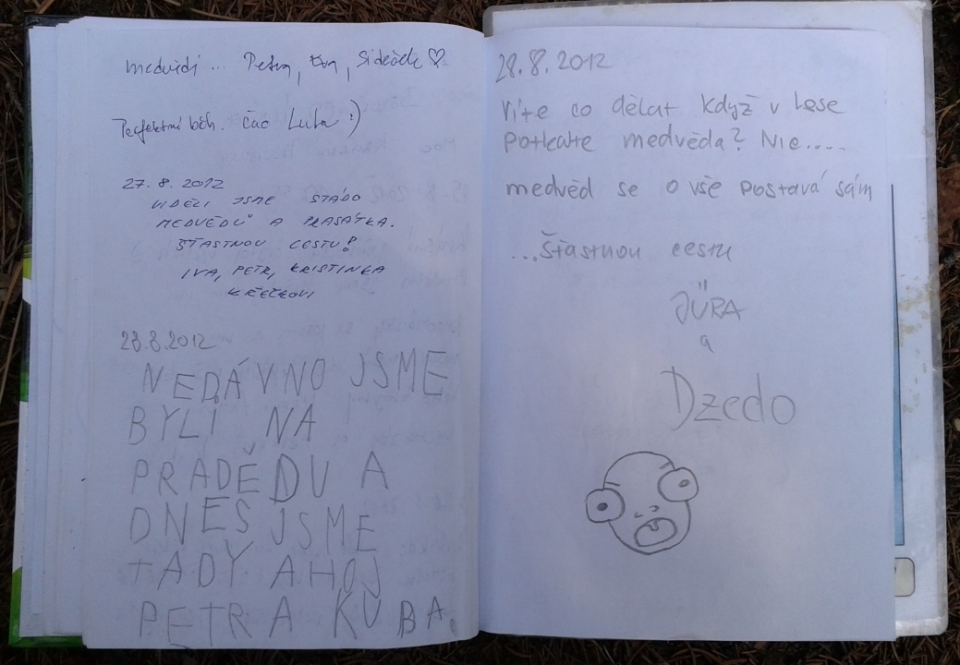 medvědi ... Petra, Eva,
Perfektní běh. čao Luba :)
27.8.2012
VIDĚLI JSME STÁDO
MEDVĚDŮ A PRASÁTKA.
ŠŤASTNOU CESTU!
IVA, PETR, KRISTINKA
KŘEČKOVI
28.8.2012
NEDÁVNO JSME
BYLI NA
PRADĚDU A
DNES JSME
TADY AHOJ
PETR A KUBA.
28.8.2012
Víte co dělat když v lese
potkate medvěda? Nie....
medvěd se o vše postavá sám
...šťastnou cestu
JÜRA
a
Dzedo